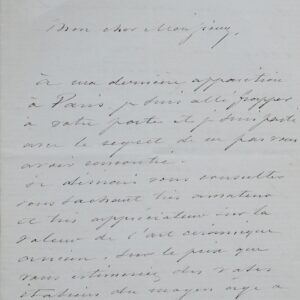 Mon cher Monsieur,
à ma dernière apparition
à Paris je suis allé frapper
à votre porte et je suis parti
avec le regret de ne pas vous
avoir rencontré.
Je désirais vous consulter
vous sachant très amateur
et très appréciateur sur la
valeur de l'art céramique
ancien, sur le prix que
vous estimeriez des vases
italiens du moyen age à